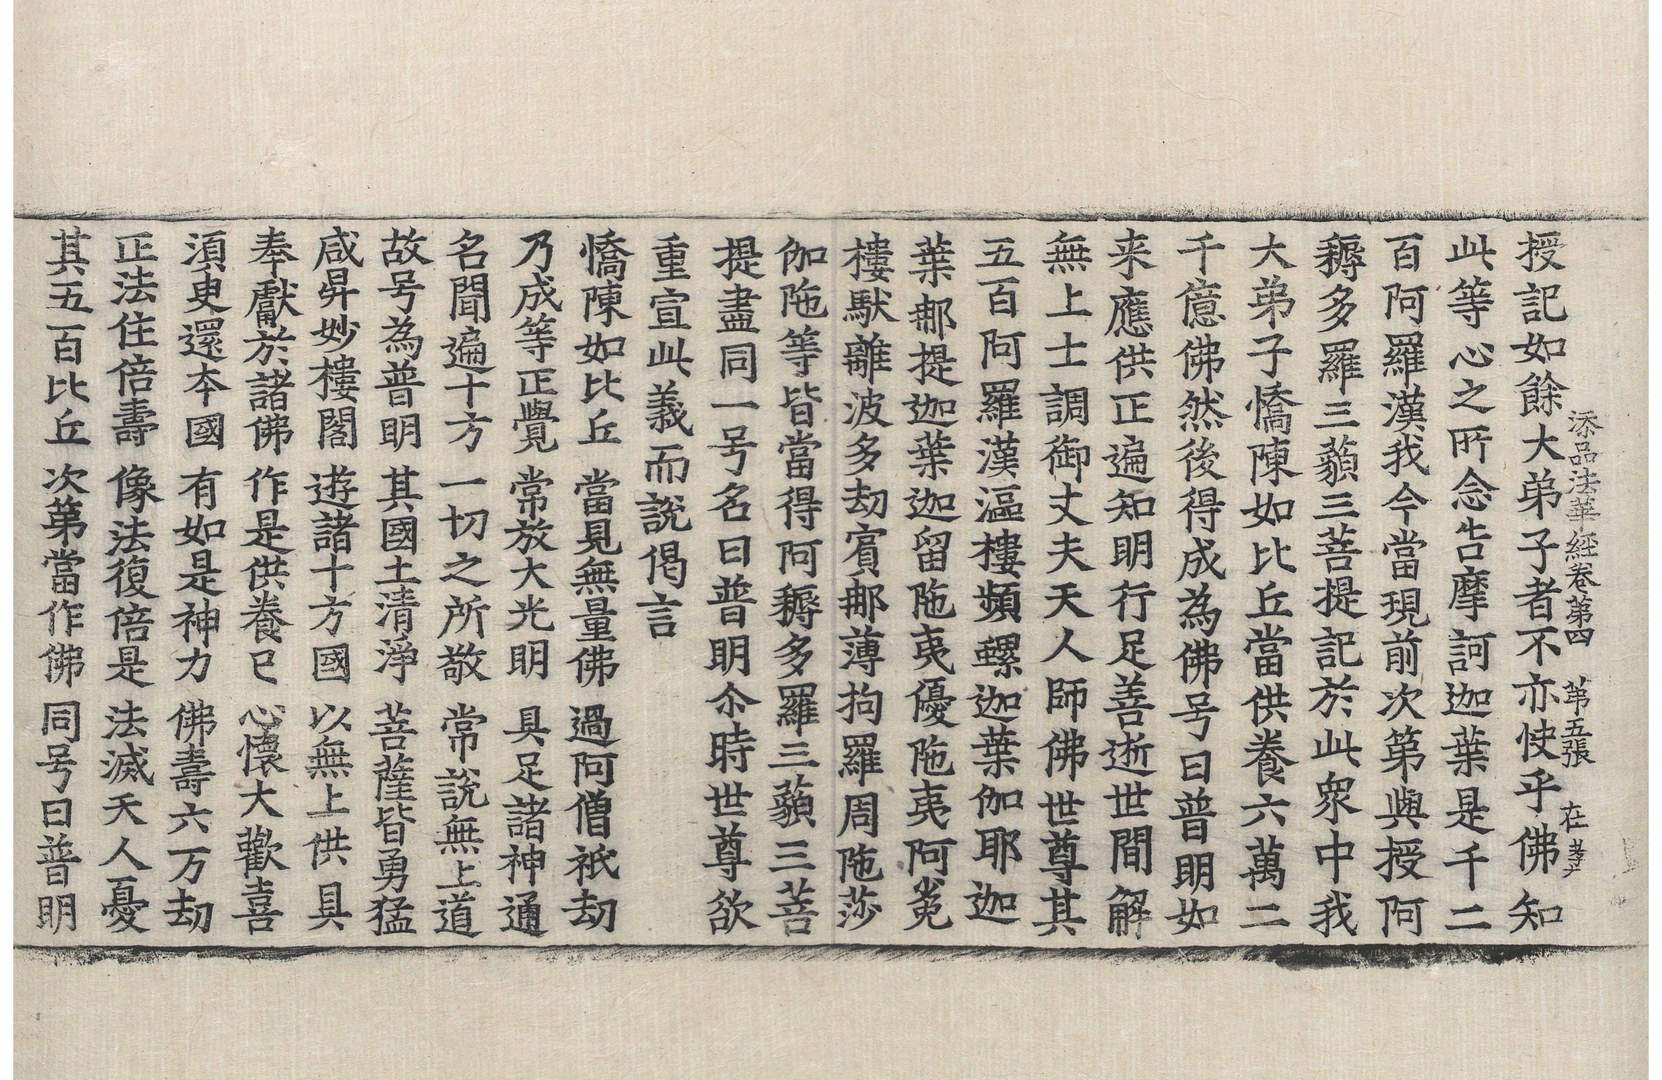 添品法華經卷第四　第五張　在
授記如餘大弟子者不亦快乎佛知
此等心之所念告摩訶迦葉是千二
百阿羅漢我今當現前次第與授阿
耨多羅三藐三菩提記於此衆中我
大弟子憍陳如比丘當供養六萬二
千億佛然後得成為佛号曰普明如
来應供正遍知明行足善逝世間解
無上士調御丈夫天人師佛世尊其
五百阿羅漢漚樓頻螺迦葉伽耶迦
葉那提迦葉迦留陁夷優陁夷阿㝹
樓馱離波多劫賓那薄拘羅周陁莎
伽陁等皆當得阿耨多羅三藐三菩
提盡同一号名曰普明尒時世尊欲
重宣此義而說偈言
憍陳如比丘　當見無量佛　過阿僧祇劫
乃成等正覺　常放大光明　具足諸神通
名聞遍十方　一切之所敬　常說無上道
故号為普明　其國土清淨　菩薩皆勇猛
咸昇妙樓閣　遊諸十方國　以無上供具
奉獻於諸佛　作是供養已　心懷大歡喜
須臾還本國　有如是神力　佛壽六万劫
正法住倍壽　像法復倍是　法滅天人憂
其五百比丘　次第當作佛　同号曰普明